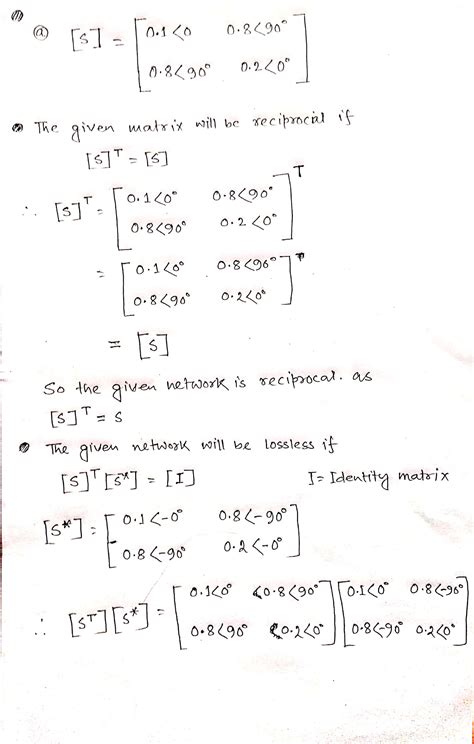 (1)
(a) [S] = [0.1<0 0.8<90°
0.8<90° 0.2<0°]
The given matrix will be reciprocal if
[S]ᵀ = [S]
∴ [S]ᵀ = [0.1<0° 0.8<90°
0.8<90° 0.2<0°]ᵀ
= [0.1<0° 0.8<90°
0.8<90° 0.2<0°]ᵀ
= [S]
So the given network is reciprocal. as
[S]ᵀ = S
The given network will be lossless if
[S]ᵀ[S*] = [I] I = Identity matrix
[S*] = [0.1<-0° 0.8<-90°
0.8<-90° 0.2<-0°]
∴ [Sᵀ][S*] = [0.1<0° 0.8<90° [0.1<0° 0.8<-90°
0.8<90° 0.2<0°] 0.8<-90° 0.2<0°]